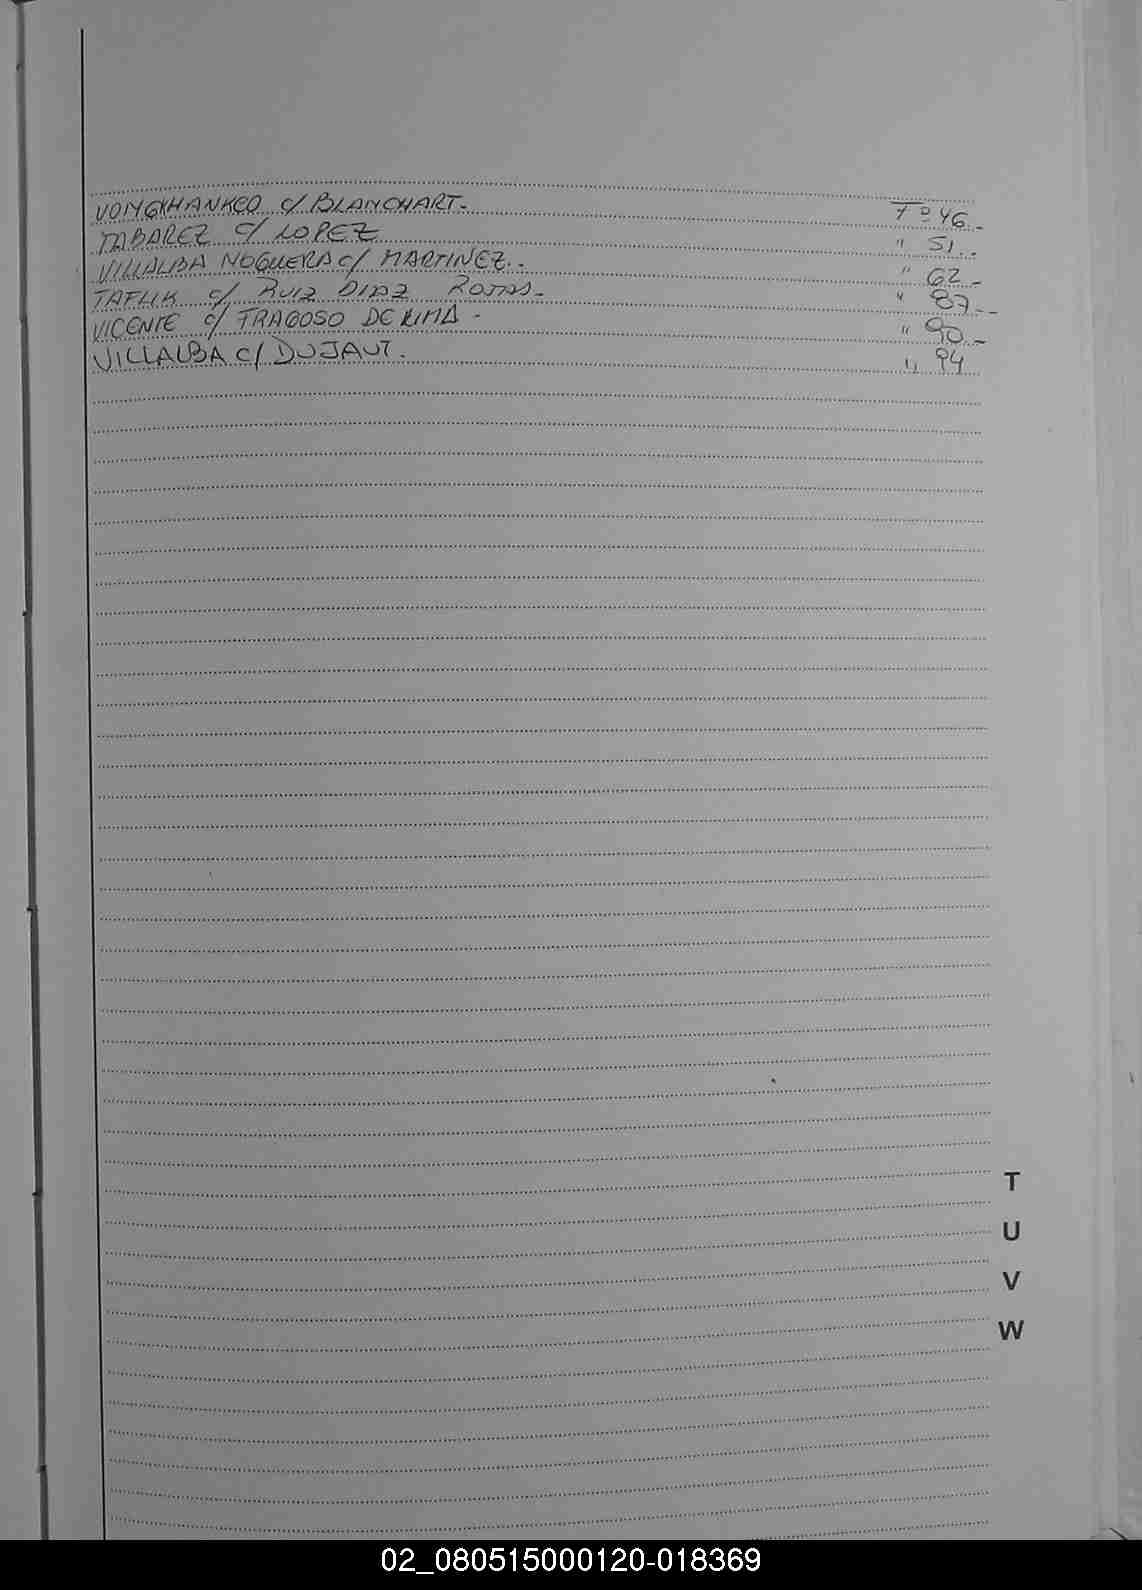 VONGKHANKEO c/ BLANCHART. Fº 46.-
TABAREZ c/ LOPEZ " 51..
VILLALBA NOGUERA c/ MARTINEZ.. " 62.-
TAFLIK c/ RUIZ DIAZ ROJAS.- " 87.--
VICENTE c/ FRAGOSO DE LIMA.- " 90.-
VILLALBA c/ DUJAUT. " 94
T
U
V
W
02_080515000120-018369